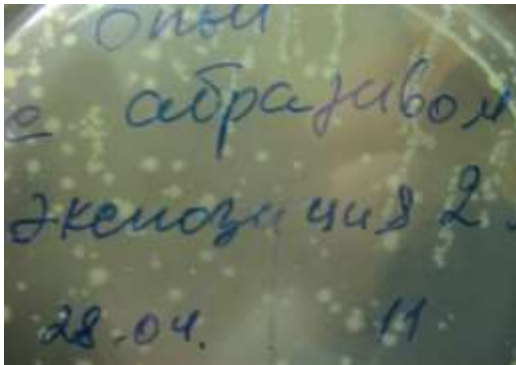 Опыт
с абразивом
экспозиция 2
28.04. 11